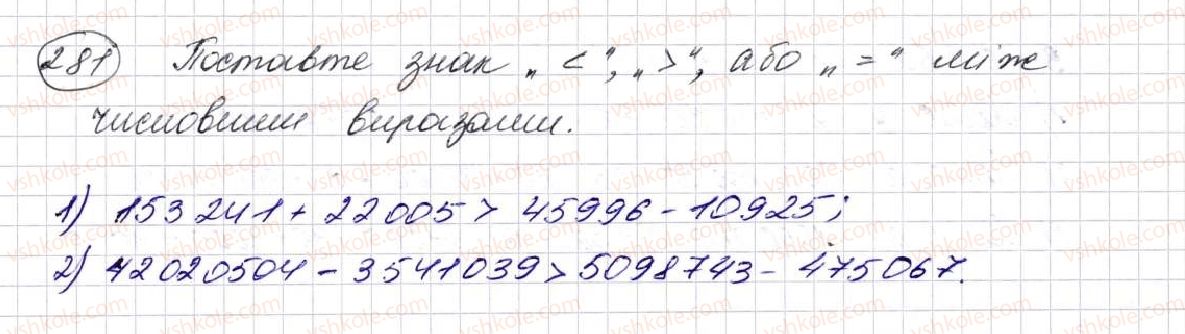 281 Поставте знак „<“, „>“, або „=“ між
числовими виразами.
1) 153 241 + 22 005 > 45 996 - 10 925;
2) 42020504 - 3541039 > 5098743 - 475067.